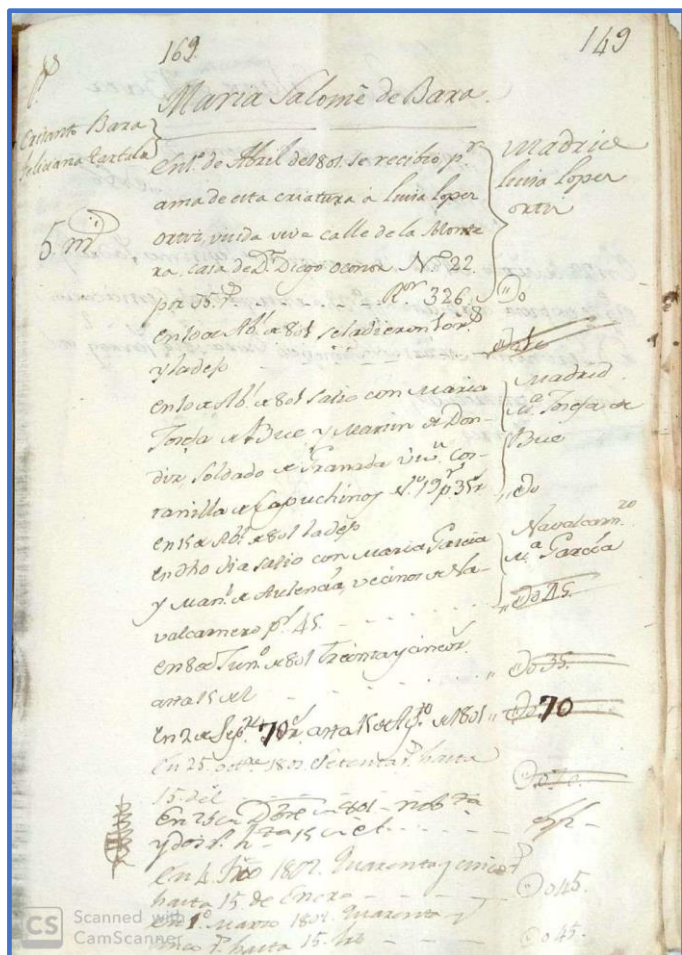 169
149
Maria Salomè de Bara.
Crisanto Bara
Feliciana
5 m
En 1º de Abril de 1801. se recibio pª
ama de esta criatura à Luisa Lopez
Ortiz, viuda vive calle de la Monte
ra, casa de Dn Diego Oconor Nº 22.
por 35 rs. Ror 326
Madrid
Luisa Lopez
Ortiz
Do
en 10 de Abl de 801 se le dieron
y la dejo
en 10 de Abl de 801 salio con Maria
Josefa de Bue y Martin de Don-
diz Soldado de Granada Cos-
tanilla de Capuchinos Nº 19 p. 35 r
Madrid
Mª Josefa de
Bue
Do
en 15 de Abl de 801 la dejo
en dho dia salio con Maria Garcia
y Manl de vecinos de Na-
valcarnero pr 45
Navalcarnro
Mª Garcia
Do 45
en 8 de Junº de 801 Treinta y cinco r.
asta 15 de
Do 35.
en 2 de Sepe 70 r. asta 15 de Agto de 1801
Do 70
En 25. Octre 1801 Setenta rs hasta
15. del
Do 70.
En 23 Dbre 801 nobta
y dos rs hta 15 el
En 4 1802. Quarenta y cinco rs
hasta 15 de Enero
Do 45.
En 1º Marzo 1802 Quarenta y
cinco rs hasta 15.
Do 45.
CS Scanned with
CamScanner